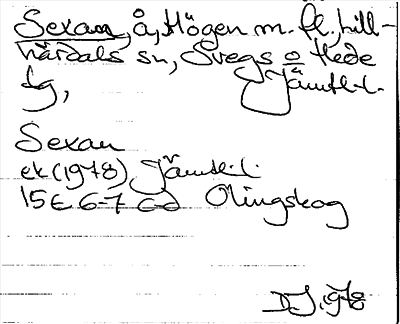 Sexan, å, Högen m. fl., Lill-
härdals sn, Svegs o Hede
tg, Jämtl. l.
Sexan
ek (1978) Jämtl. l.
15E 6-7 c-d Olingskog
DJ, 1978